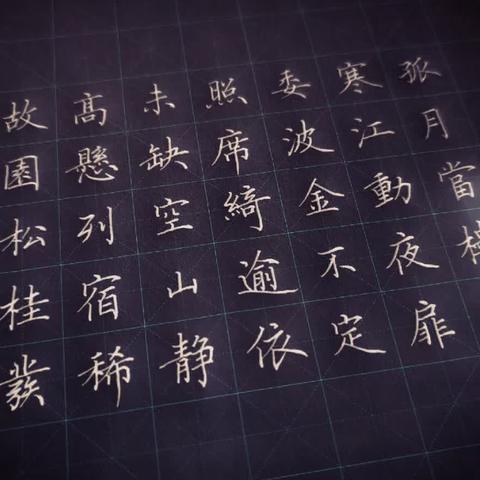 孤月當
寒江動夜扉
委波金不定
照席綺逾依
未缺空山静
髙懸列宿稀
故園松桂發